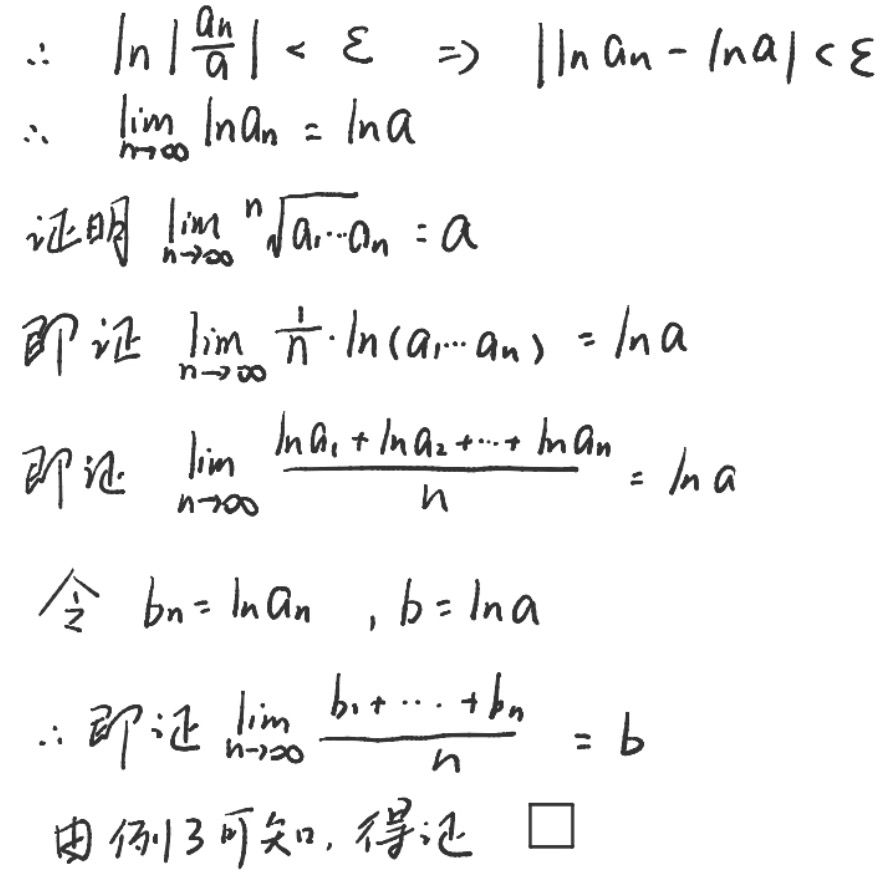 ∴ ln|aₙ/a| < ε ⇒ |ln aₙ - ln a| < ε
∴ lim_{n→∞} ln aₙ = ln a
证明 lim_{n→∞} ⁿ√(a₁…aₙ) = a
即证 lim_{n→∞} 1/n · ln(a₁…aₙ) = ln a
即证 lim_{n→∞} (ln a₁ + ln a₂ + … + ln aₙ)/n = ln a
令 bₙ = ln aₙ , b = ln a
∴ 即证 lim_{n→∞} (b₁ + … + bₙ)/n = b
由例3可知, 得证 □